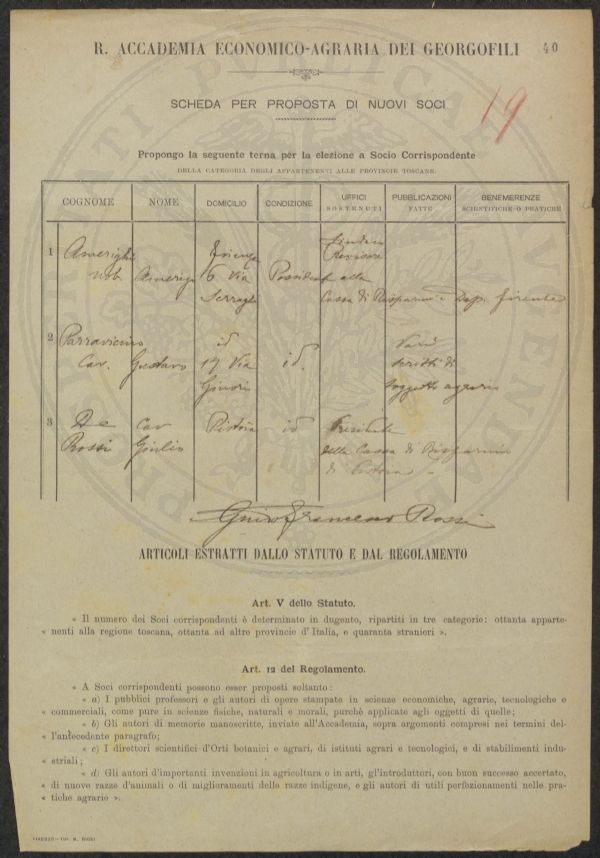 R. ACCADEMIA ECONOMICO-AGRARIA DEI GEORGOFILI
40
SCHEDA PER PROPOSTA DI NUOVI SOCI
19
Propongo la seguente terna per la elezione a Socio Corrispondente
DELLA CATEGORIA DEGLI APPARTENENTI ALLE PROVINCIE TOSCANE.
COGNOME NOME DOMICILIO CONDIZIONE UFFICI SOSTENUTI PUBBLICAZIONI FATTE BENEMERENZE SCIENTIFICHE O PRATICHE
1 Amerighi Firenze Sindaco
Nob. Amerigo 6 Via Possidente Revisore alla
Serragli Cassa di Risparmio e Dep. Firenze
2 Parravicino id Varii
Cav. Gustavo 17 Via id. scritti di
Ginori soggetto agrario
3 De Cav Pistoia id Presidente
Rossi Giulio della Cassa di Risparmio
di Pistoia
Guido Francesco Rossi
ARTICOLI ESTRATTI DALLO STATUTO E DAL REGOLAMENTO
Art. V dello Statuto.
« Il numero dei Soci corrispondenti è determinato in dugento, ripartiti in tre categorie: ottanta apparte-
« nenti alla regione toscana, ottanta ad altre provincie d'Italia, e quaranta stranieri ».
Art. 12 del Regolamento.
« A Soci corrispondenti possono esser proposti soltanto:
« a) I pubblici professori e gli autori di opere stampate in scienze economiche, agrarie, tecnologiche e
« commerciali, come pure in scienze fisiche, naturali e morali, purchè applicate agli oggetti di quelle;
« b) Gli autori di memorie manoscritte, inviate all'Accademia, sopra argomenti compresi nei termini del-
« l'antecedente paragrafo;
« c) I direttori scientifici d'Orti botanici e agrari, di istituti agrari e tecnologici, e di stabilimenti indu-
« striali;
« d) Gli autori d'importanti invenzioni in agricoltura o in arti, gl'introduttori, con buon successo accertato,
« di nuove razze d'animali o di miglioramenti delle razze indigene, e gli autori di utili perfezionamenti nelle pra-
« tiche agrarie ».